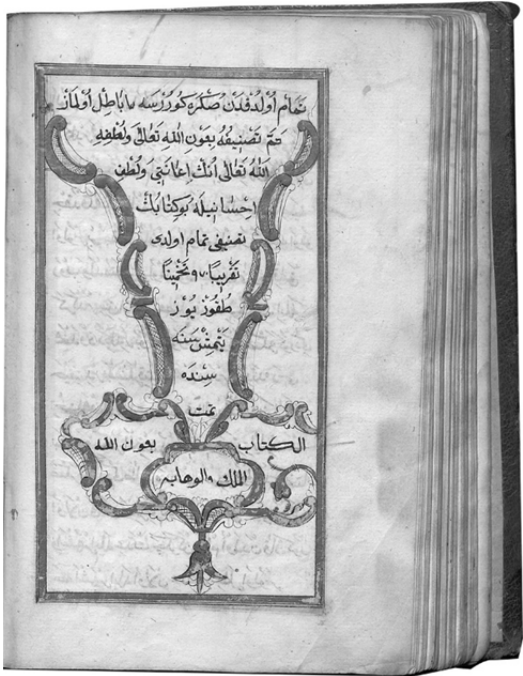 تمام اولدقدن صكره كوررسه باطل اولماز
تم تصنيفه بعون الله تعالى ولطفه
الله تعالى انك اعانتى ولطف
احسانيله بو كتابك
تصنيفى تمام اولدى
تقريبا ٩٧٠ تخمينا
طقوز يوز
يتمش سنه
سنده
تمت
الكتاب بعون الله
الملك والوهابه